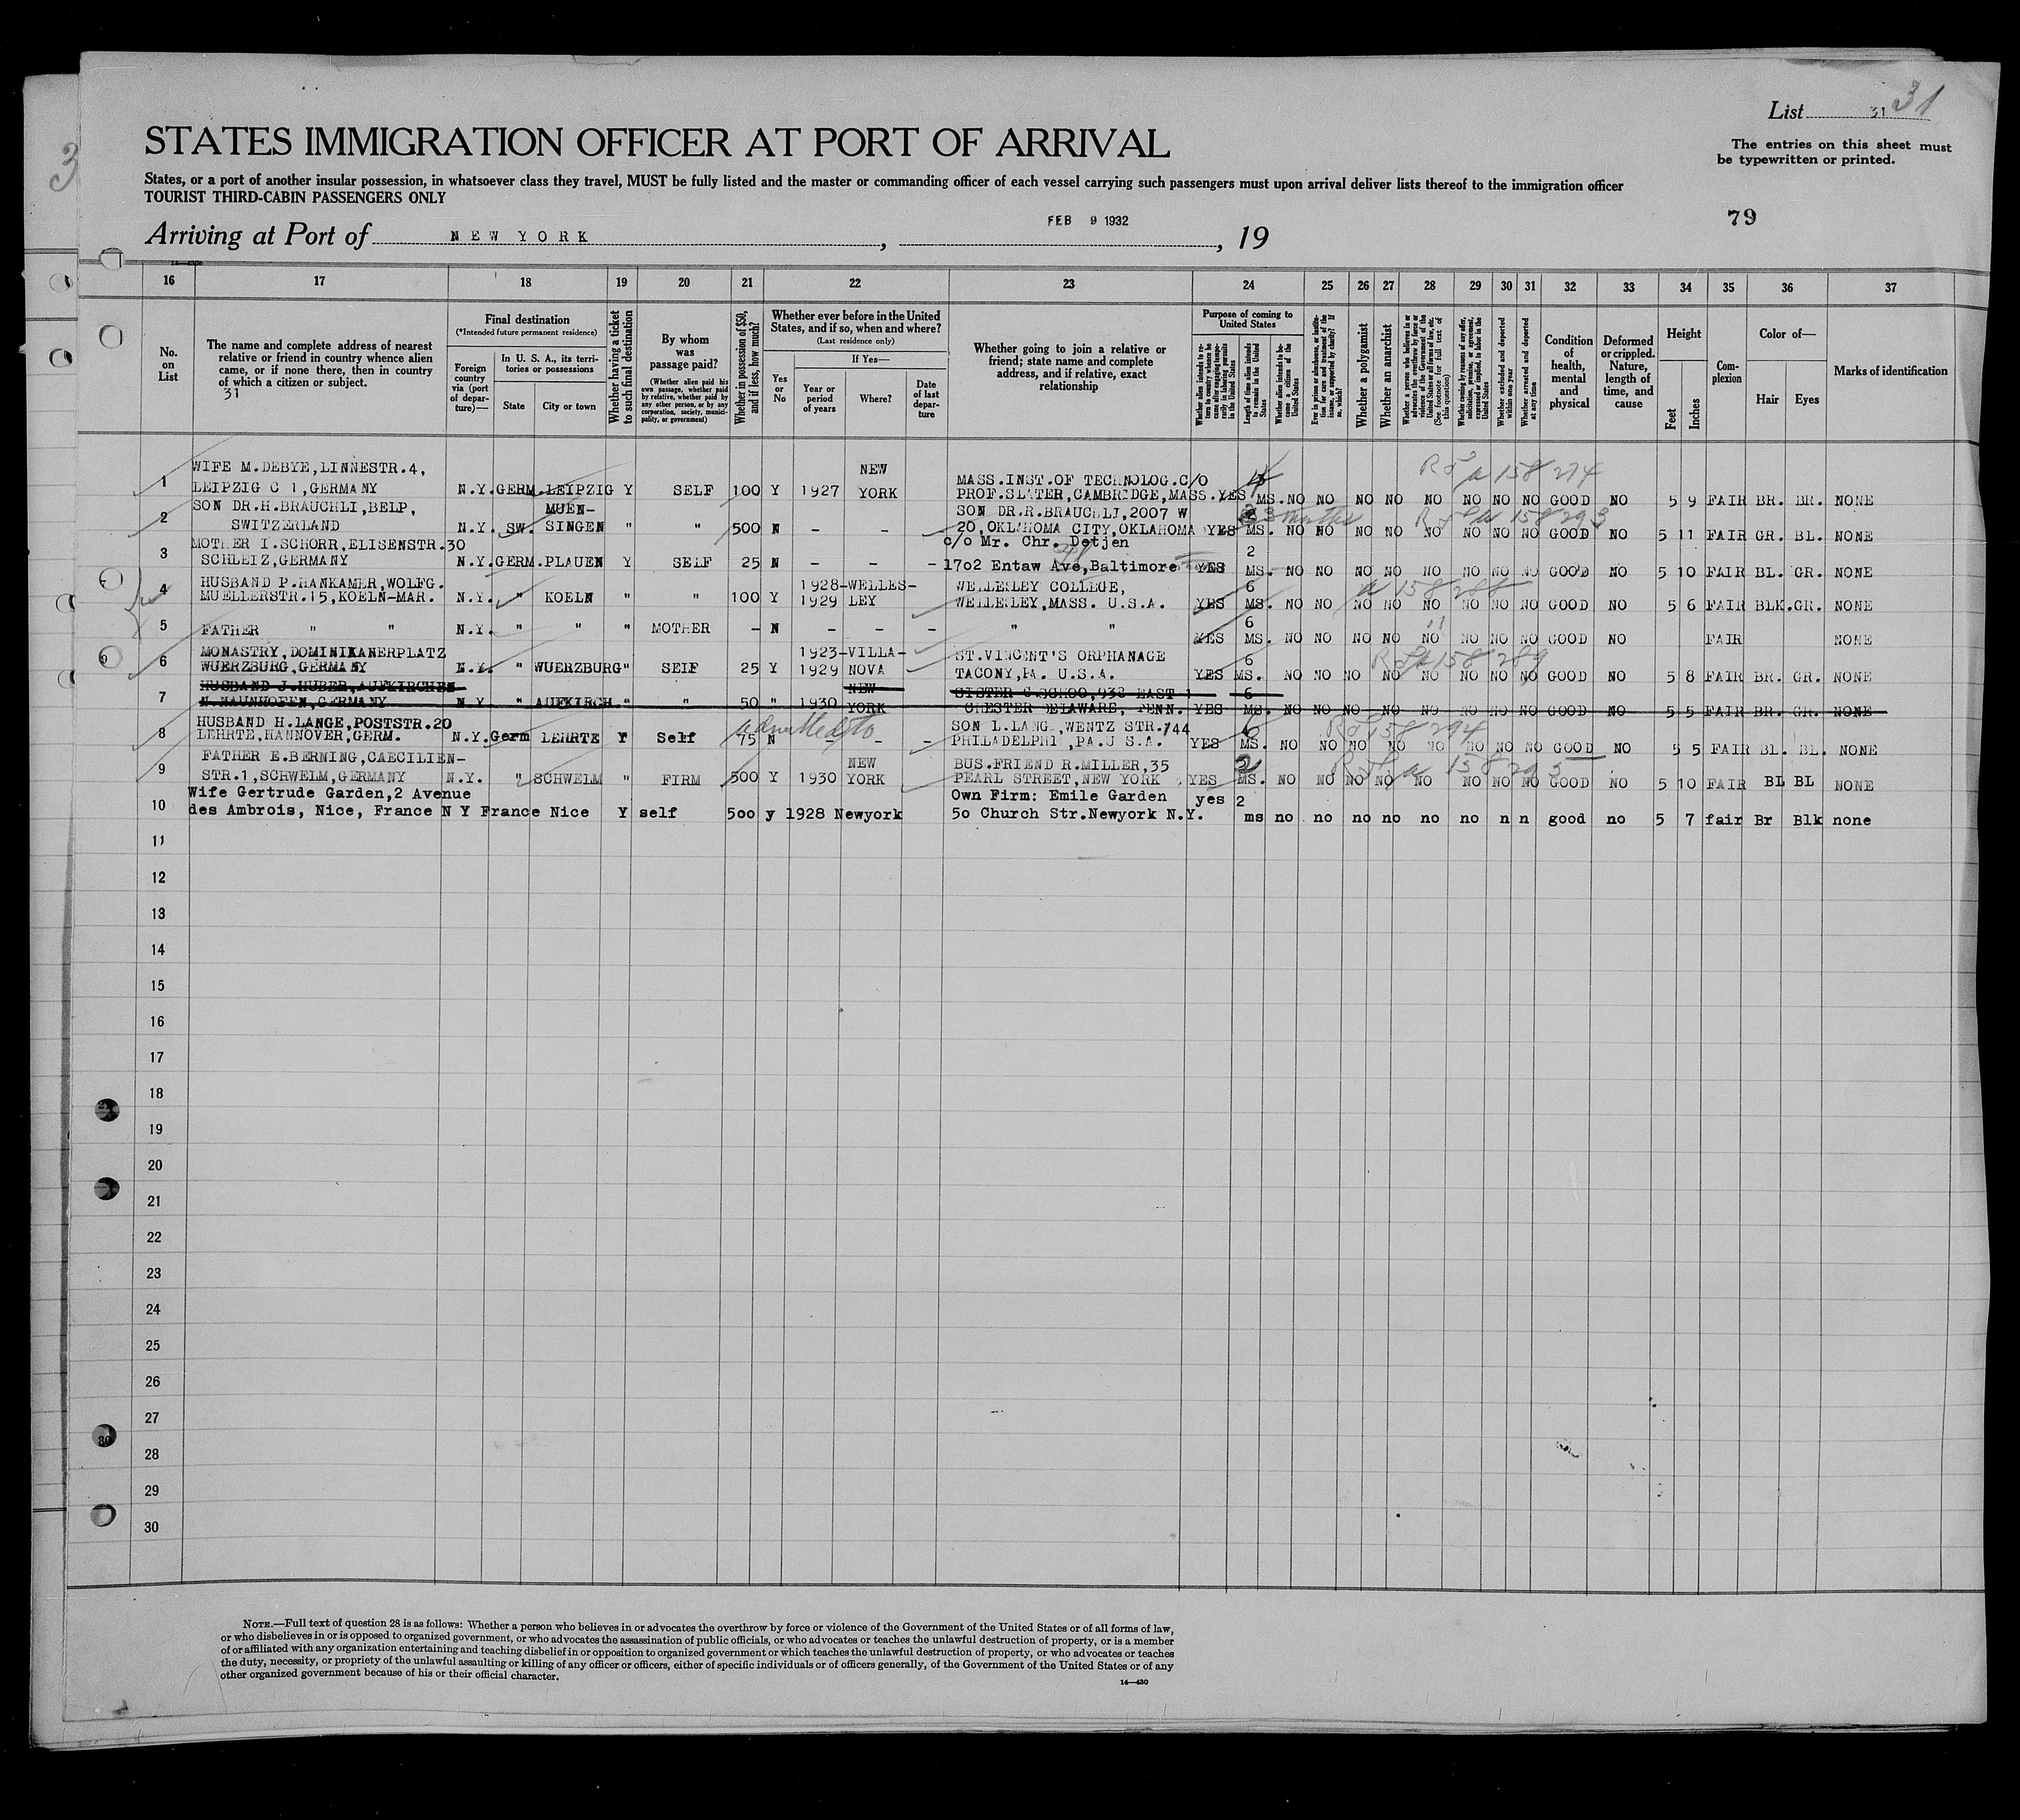 List 31 31
The entries on this sheet must
be typewritten or printed.
STATES IMMIGRATION OFFICER AT PORT OF ARRIVAL
States, or a port of another insular possession, in whatsoever class they travel, MUST be fully listed and the master or commanding officer of each vessel carrying such passengers must upon arrival deliver lists thereof to the immigration officer
TOURIST THIRD-CABIN PASSENGERS ONLY
3
79
Arriving at Port of NEW YORK, FEB 9 1932, 19
16 17 18 19 20 21 22 23 24 25 26 27 28 29 30 31 32 33 34 35 36 37
No. on List
The name and complete address of nearest
relative or friend in country whence alien
came, or if none there, then in country
of which a citizen or subject.
31
Final destination
(*Intended future permanent residence)
Foreign country via (port of departure)—
In U. S. A., its territories or possessions
State
City or town
Whether having a ticket to such final destination
By whom was passage paid?
(Whether alien paid his own passage, whether paid by relative, whether paid by any other person, or by any corporation, society, municipality, or government)
Whether in possession of $50, and if less, how much?
Whether ever before in the United
States, and if so, when and where?
(Last residence only)
Yes or No
If Yes—
Year or period of years
Where?
Date of last departure
Whether going to join a relative or
friend; state name and complete
address, and if relative, exact
relationship
Purpose of coming to
United States
Length of time alien intends to remain in the United States
Whether alien intends to become a citizen of the United States
Whether a polygamist
Whether an anarchist
Whether excluded and deported within one year
Whether arrested and deported at any time
Condition of health, mental and physical
Deformed or crippled. Nature, length of time, and cause
Height
Feet
Inches
Complexion
Color of—
Hair
Eyes
Marks of identification
1 WIFE M.DEBYE,LINNESTR.4, NEW MASS.INST.OF TECHNOLOG.C/O
LEIPZIG C 1,GERMANY N.Y. GERM. LEIPZIG Y SELF 100 Y 1927 YORK PROF.SLATER,CAMBRIDGE,MASS. YES MS. NO NO NO NO NO NO NO NO GOOD NO 5 9 FAIR BR. BR. NONE
2 SON DR.H.BRAUCHLI,BELP, MUEN- SON DR.R.BRAUCHLI,2007 W 3 months
SWITZERLAND N.Y. SW. SINGEN " " 500 N - - 20,OKLAHOMA CITY,OKLAHOMA YES MS. NO NO NO NO NO NO NO NO GOOD NO 5 11 FAIR GR. BL. NONE
3 MOTHER I.SCHORR,ELISENSTR.30 c/o Mr. Chr. Detjen 2
SCHLEIZ,GERMANY N.Y. GERM. PLAUEN Y SELF 25 N - - - 1702 Entaw Ave,Baltimore YES MS. NO NO NO NO NO NO NO NO GOOD NO 5 10 FAIR BL. GR. NONE
4 HUSBAND P.HANKAMER,WOLFG. 1928- WELLES- WELLESLEY COLLEGE, 6
MUELLERSTR.15,KOELN-MAR. N.Y. " KOELN " " 100 Y 1929 LEY WELLESLEY,MASS. U.S.A. YES MS. NO NO NO NO NO NO NO NO GOOD NO 5 6 FAIR BLK. GR. NONE
5 FATHER " " N.Y. " " " MOTHER - N - - - " " 6
YES MS. NO NO NO NO NO NO NO NO GOOD NO FAIR NONE
6 MONASTRY,DOMINIKANERPLATZ 1923- VILLA- ST.VINCENT'S ORPHANAGE 6
WUERZBURG,GERMANY N.Y. " WUERZBURG " SELF 25 Y 1929 NOVA TACONY,PA. U.S.A. YES MS. NO NO NO NO NO NO NO NO GOOD NO 5 8 FAIR BR. GR. NONE
7 HUSBAND J.HUBER,AUFKIRCHEN NEW 6
N.Y. " AUFKIRCH " " 50 " 1930 YORK CHESTER DELAWARE, PENN. YES MS. NO NO NO NO NO NO NO NO GOOD NO 5 5 FAIR BR. GR. NONE
8 HUSBAND H.LANGE,POSTSTR.20 admitted to SON L.LANG ,WENTZ STR.744
LEHRTE,HANNOVER,GERM. N.Y. Germ LEHRTE Y Self 75 N - - - PHILADELPHI ,PA.U S.A. YES MS. NO NO NO NO NO NO NO NO GOOD NO 5 5 FAIR BL. BL. NONE
9 FATHER E.BERNING,CAECILIEN- NEW BUS.FRIEND R.MILLER,35 2
STR.1,SCHWELM,GERMANY N.Y. " SCHWELM " FIRM 500 Y 1930 YORK PEARL STREET,NEW YORK YES MS. NO NO NO NO NO NO NO NO GOOD NO 5 10 FAIR BL BL NONE
10 Wife Gertrude Garden,2 Avenue Own Firm: Emile Garden yes 2
des Ambrois, Nice, France N Y France Nice Y self 500 y 1928 Newyork 50 Church Str.Newyork N.Y. ms no no no no no no n n good no 5 7 fair Br Blk none
11
12
13
14
15
16
17
18
19
20
21
22
23
24
25
26
27
28
29
30
NOTE.—Full text of question 28 is as follows: Whether a person who believes in or advocates the overthrow by force or violence of the Government of the United States or of all forms of law,
or who disbelieves in or is opposed to organized government, or who advocates the assassination of public officials, or who advocates or teaches the unlawful destruction of property, or is a member
of or affiliated with any organization entertaining and teaching disbelief in or opposition to organized government or which teaches the unlawful destruction of property, or who advocates or teaches
the duty, necessity, or propriety of the unlawful assaulting or killing of any officer or officers, either of specific individuals or of officers generally, of the Government of the United States or of any
other organized government because of his or their official character.
14—430